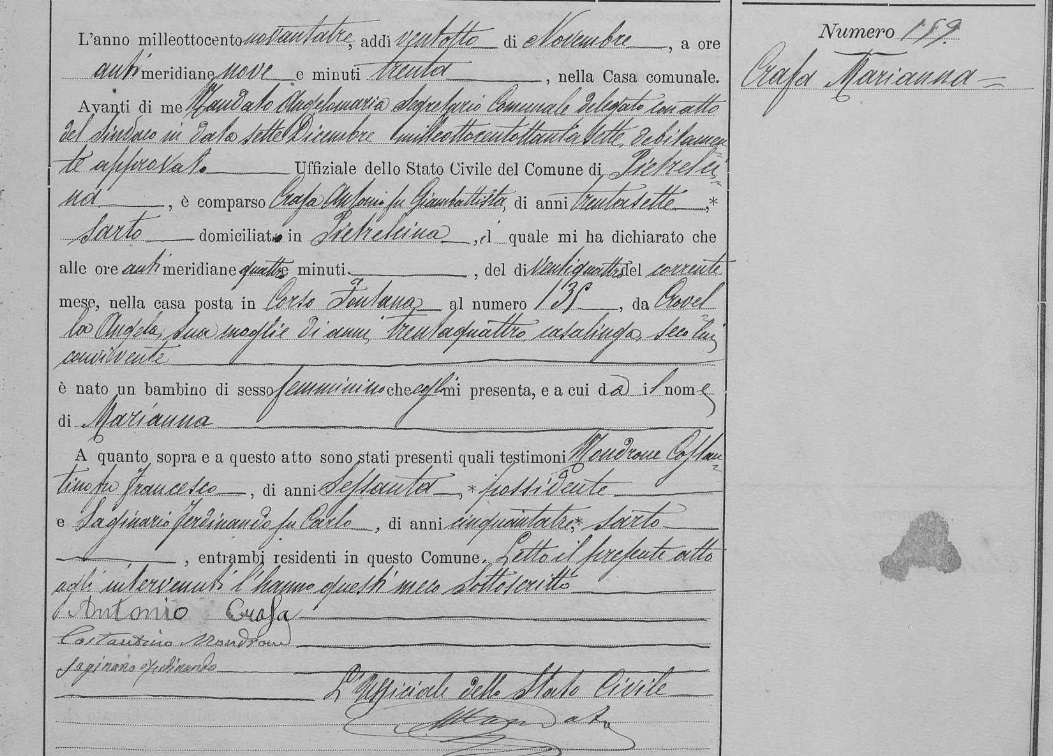 Numero 159
Crafa Marianna
L'anno milleottocento novantatre, addì ventotto di Novembre, a ore
antimeridiane nove e minuti trenta, nella Casa comunale.
Avanti di me Mandato Angelomaria Segretario Comunale delegato con atto
del Sindaco in data sette Dicembre milleottocentottantasette, debitamen-
te approvato Uffiziale dello Stato Civile del Comune di Pietrelci-
na, è comparso Crafa Antonio fu Giambattista, di anni trentasette,*
sarto domiciliato in Pietrelcina, il quale mi ha dichiarato che
alle ore antimeridiane quattro e minuti, del dì ventiquattro del corrente
mese, nella casa posta in Corso Fontana al numero 135, da Crovel-
la Angela, sua moglie di anni trentaquattro, casalinga, seco lui
convivente
è nato un bambino di sesso femminino che egli mi presenta, e a cui dà il nome
di Marianna
A quanto sopra e a questo atto sono stati presenti quali testimoni Mondrone Costan-
tino fu Francesco, di anni sessanta,* possidente
e Saginario Ferdinando fu Carlo, di anni cinquantatre,* sarto
, entrambi residenti in questo Comune. Letto il presente atto
agli intervenuti l'hanno questi meco sottoscritto
Antonio Crafa
Costantino Mondrone
Saginario Ferdinando
L'Uffiziale dello Stato Civile